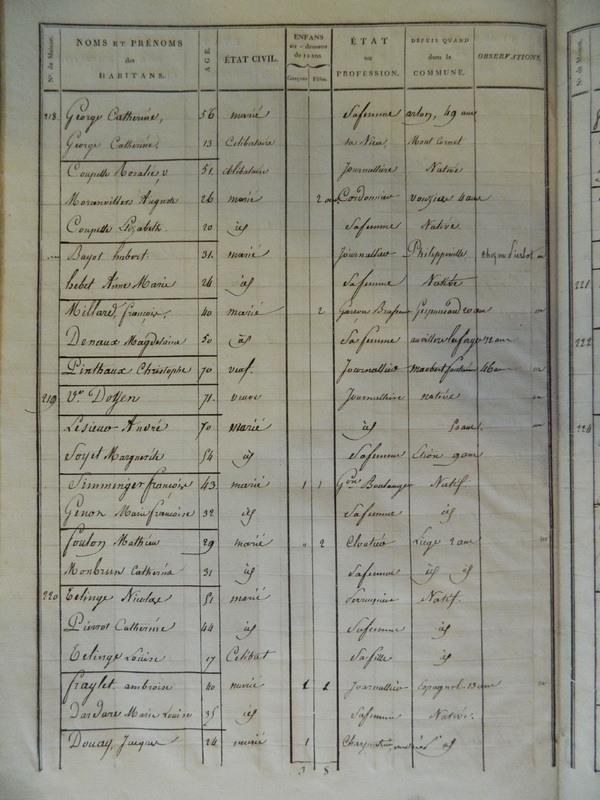 N.º de Maison. NOMS ET PRÉNOMS des HABITANS. AGE. ÉTAT CIVIL. ENFANS au-dessous de 12 ans Garçons Filles. ÉTAT ou PROFESSION. DEPUIS QUAND dans la COMMUNE. OBSERVATIONS.
218. George Catherine, 56 marié Sa femme arlon, 49 ans
George Catherine, 13 Celibataire sa Niece, Mont Cornet
Coupette Rosalie, 51. célibataire Journalliere Native
Moranvillers Auguste 26 marié 2 Cordonnier vouziers 4 ans
Coupette Elizabeth. 20 id Sa femme Native.
Bayot hubert. 31. marié Journallier Philippeville
hebet Anne Marie 24 id Sa femme Native
Millard, françois, 40 marié 2 Garçon Brasseur 20 ans
Denaux Magdelaine 50 id Sa femme 12 ans
Pinthaux Christophe 70 veuf. Journallier 46 ans
219 V.e Doyen 71. veuve Journalliere native
Lesieur André 70 marié id 50 ans.
Soyet Marguerite 54 id Sa femme 9 ans
Simminger françois 43. marié 1 1 G.on Boulanger Natif
Genon Marie françoise 32 id Sa femme id
foulon Mathieu 29 marié " 2 Cloutier Liege 2 ans
Monbrun Catherine 31 id Sa femme id id
220 Etlinge Nicolas 51 marié Serrurier Natif.
Pierrot Catherine 44 id Sa femme id
Etlinge Louise 17 Celibat Sa fille id
fraylet ambroise 40 marié 1 1 Journallier Espagnol. 13 ans
Dardare Marie Louise 35 id Sa femme Native.
Douay, Jacques 24 marié 1 Charpentier id
3 8
221
222
224